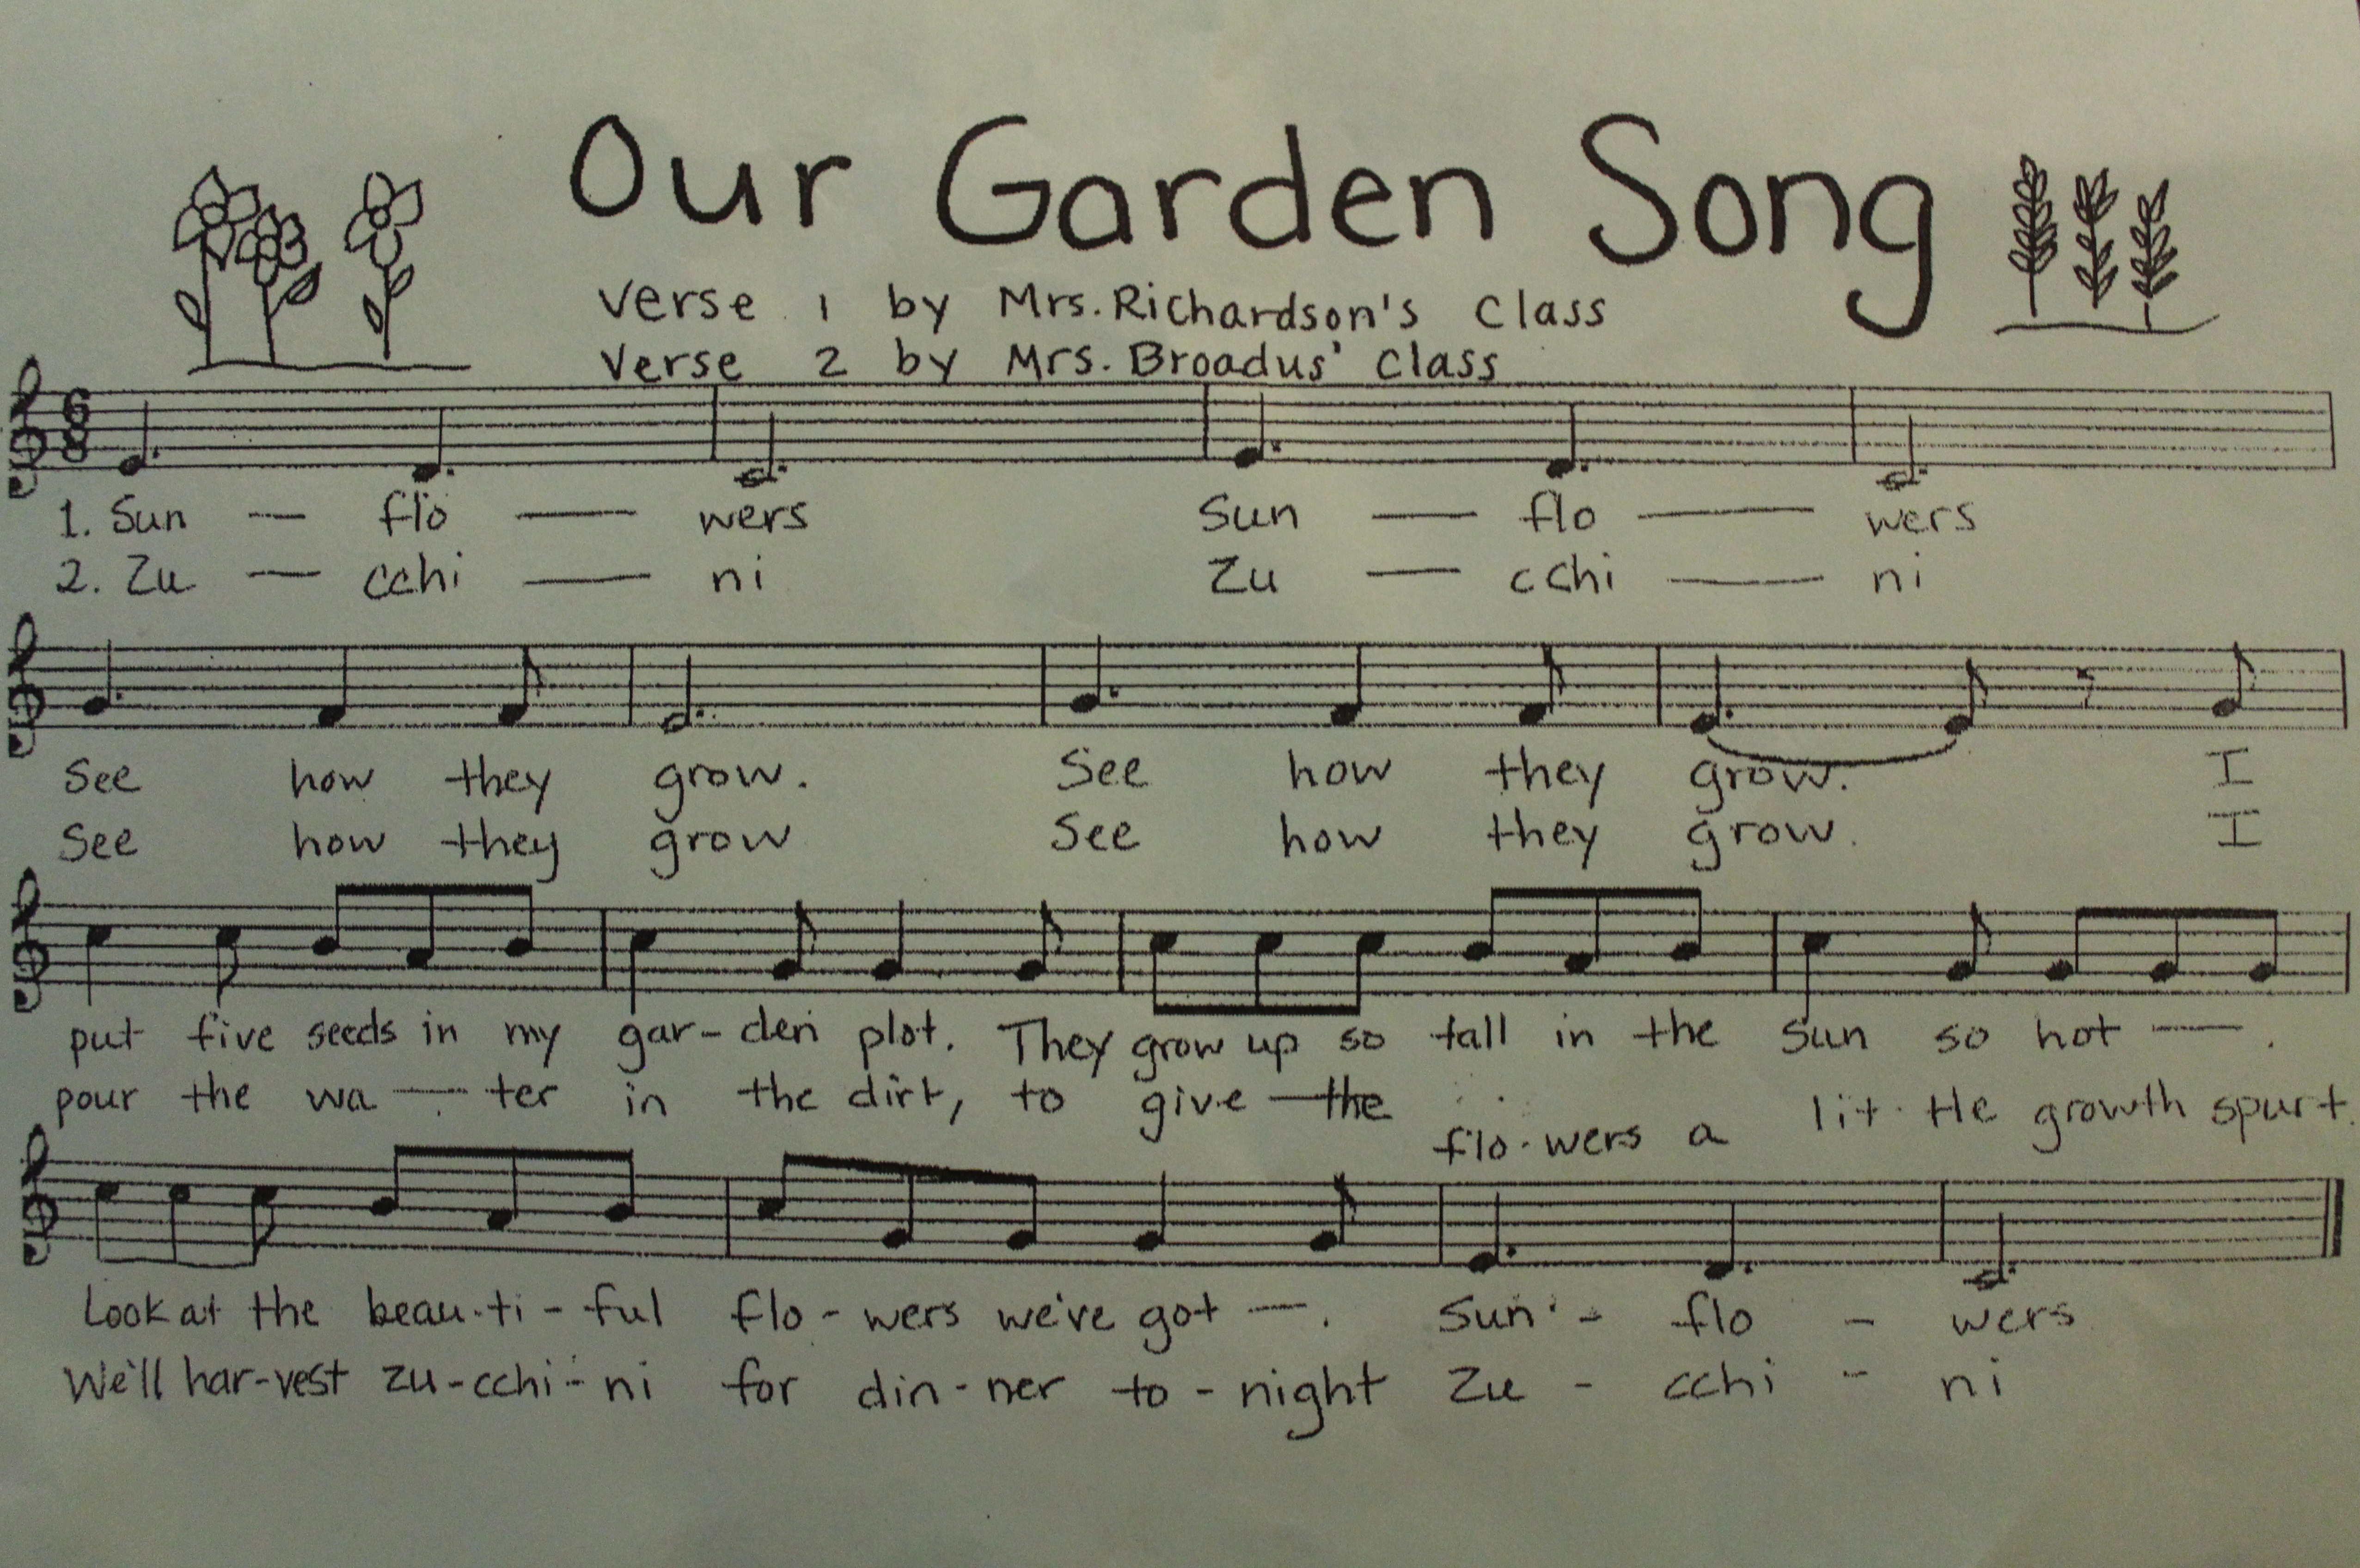 Our Garden Song
Verse 1 by Mrs. Richardson's Class
Verse 2 by Mrs. Broadus' Class
6
8
1. Sun — flo — wers Sun — flo — wers
2. Zu — cchi — ni Zu — cchi — ni
See how they grow. See how they grow. I
See how they grow See how they grow. I
put five seeds in my gar-den plot. They grow up so tall in the sun so hot — .
pour the wa — ter in the dirt, to give — the flo-wers a lit-tle growth spurt.
Look at the beau-ti-ful flo-wers we've got — . Sun - flo - wers
We'll har-vest zu-cchi-ni for din-ner to-night Zu - cchi - ni